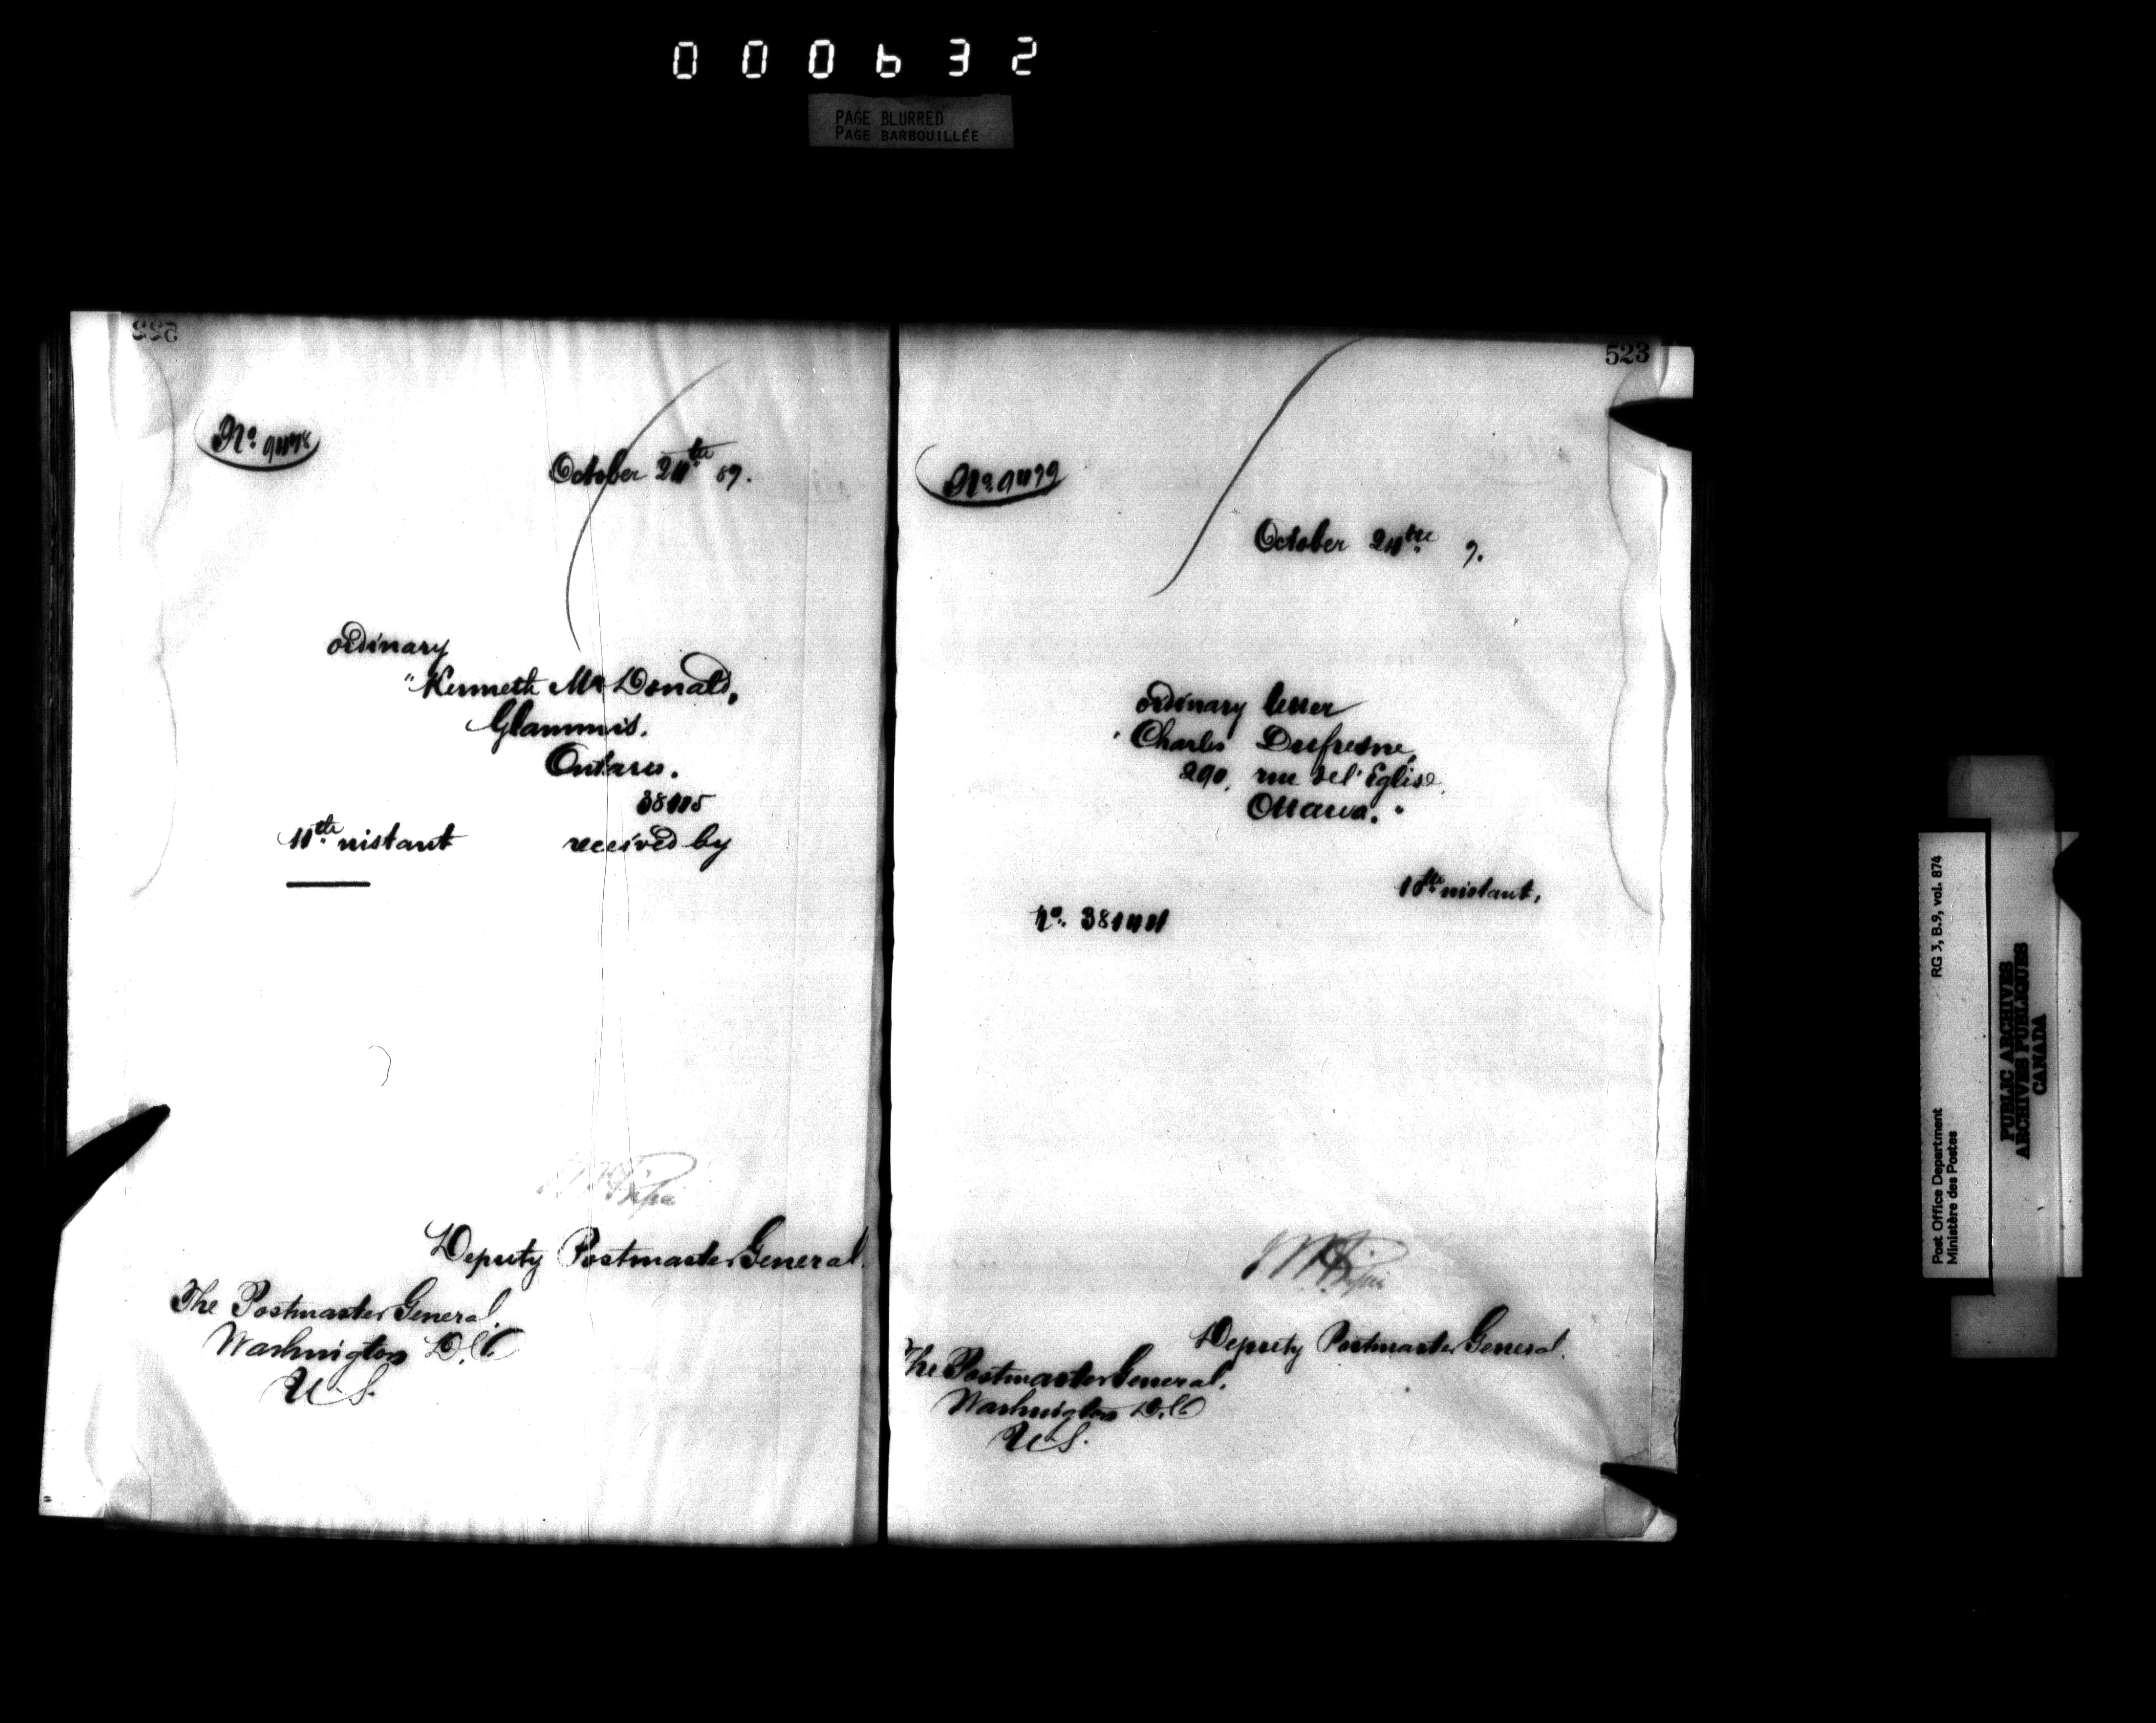 000632
PAGE BLURRED
PAGE BARBOUILLÉE
522
No. 9478
October 24th 89.
ordinary
"Kenneth McDonald,
Glammis.
Ontario.
received by
11th instant
523
No. 9479
October 24th 9.
ordinary letter
Charles Dufresne,
290, rue de l'Eglise,
Ottawa."
instant,
No.
Deputy Postmaster General.
The Postmaster General.
Washington D.C.
U.S.
Deputy Postmaster General.
The Postmaster General.
Washington D.C.
U.S.
Post Office Department
Ministère des Postes
RG 3, B.9, vol. 874
PUBLIC ARCHIVES
ARCHIVES PUBLIQUES
CANADA